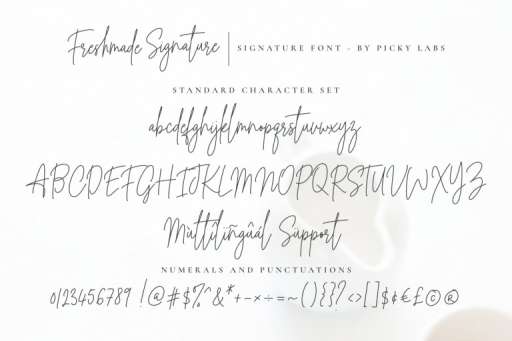 Freshmade Signature | SIGNATURE FONT - BY PICKY LABS
STANDARD CHARACTER SET
abcdefghijklmnopqrstuvwxyz
ABCDEFGHIJKLMNOPQRSTUVWXYZ
Mùltîlïñgûál Sùppört
NUMERALS AND PUNCTUATIONS
0123456789 !@#$%^&*+-×÷=~(){}?<>[]$¢€£©®